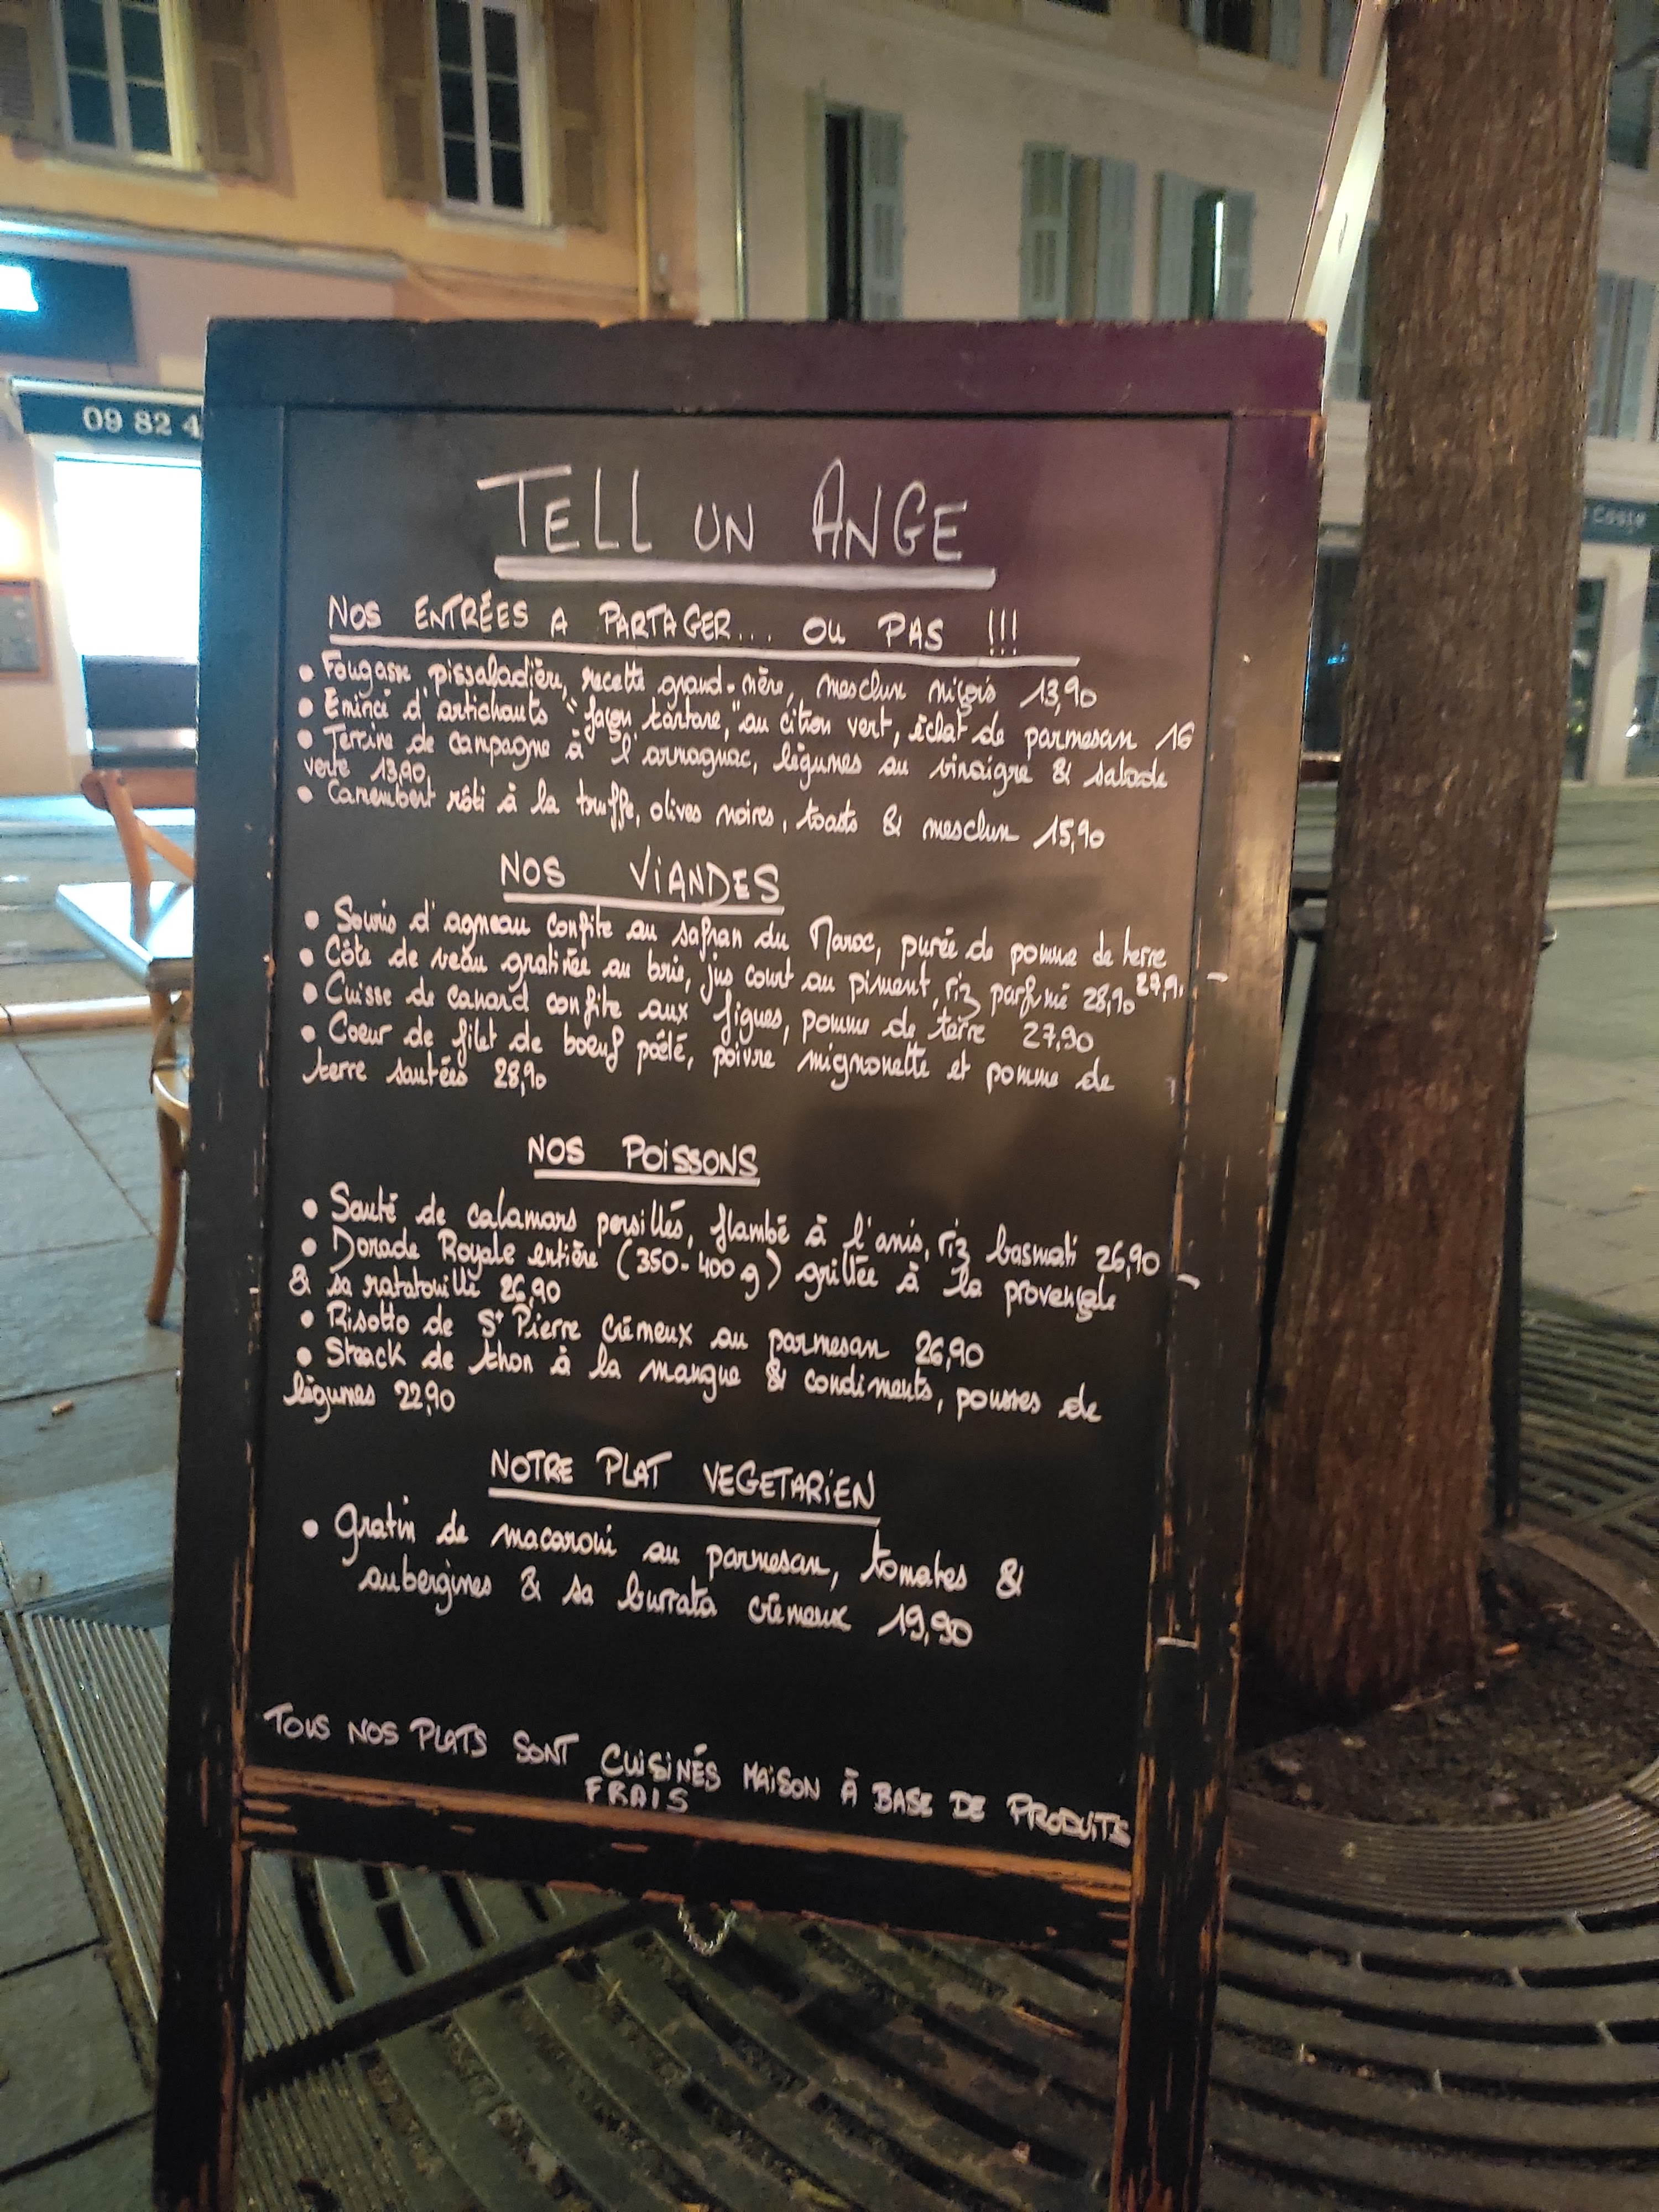 09 82 4
TELL UN ANGE
NOS ENTRÉES A PARTAGER... OU PAS !!!
• Fougasse pissaladière, recette grand-mère, mesclun niçois 13,90
• Eminci d'artichauts "façon tartare," au citron vert, éclat de parmesan 16
• Terrine de campagne à l'armagnac, légumes au vinaigre & salade
verte 13,90
• Camembert rôti à la truffe, olives noires, toasts & mesclun 15,90
NOS VIANDES
• Souris d'agneau confite au safran du Maroc, purée de pomme de terre
27,9
• Côte de veau gratinée au brie, jus court au piment, riz parfumé 28,90
• Cuisse de canard confite aux figues, pomme de terre 27,90
• Coeur de filet de boeuf poêlé, poivre mignonette et pomme de
terre sautées 28,90
NOS POISSONS
• Sauté de calamars persillés, flambé à l'anis, riz basmati 26,90
• Dorade Royale entière (350-400g) grillée à la provençale
& sa ratatouille 26,90
• Risotto de St Pierre Crémeux au parmesan 26,90
• Steack de thon à la mangue & condiments, pousses de
légumes 22,90
NOTRE PLAT VEGETARIEN
• Gratin de macaroni au parmesan, tomates &
aubergines & sa burrata crémeux 19,90
TOUS NOS PLATS SONT CUISINÉS MAISON À BASE DE PRODUITS
FRAIS